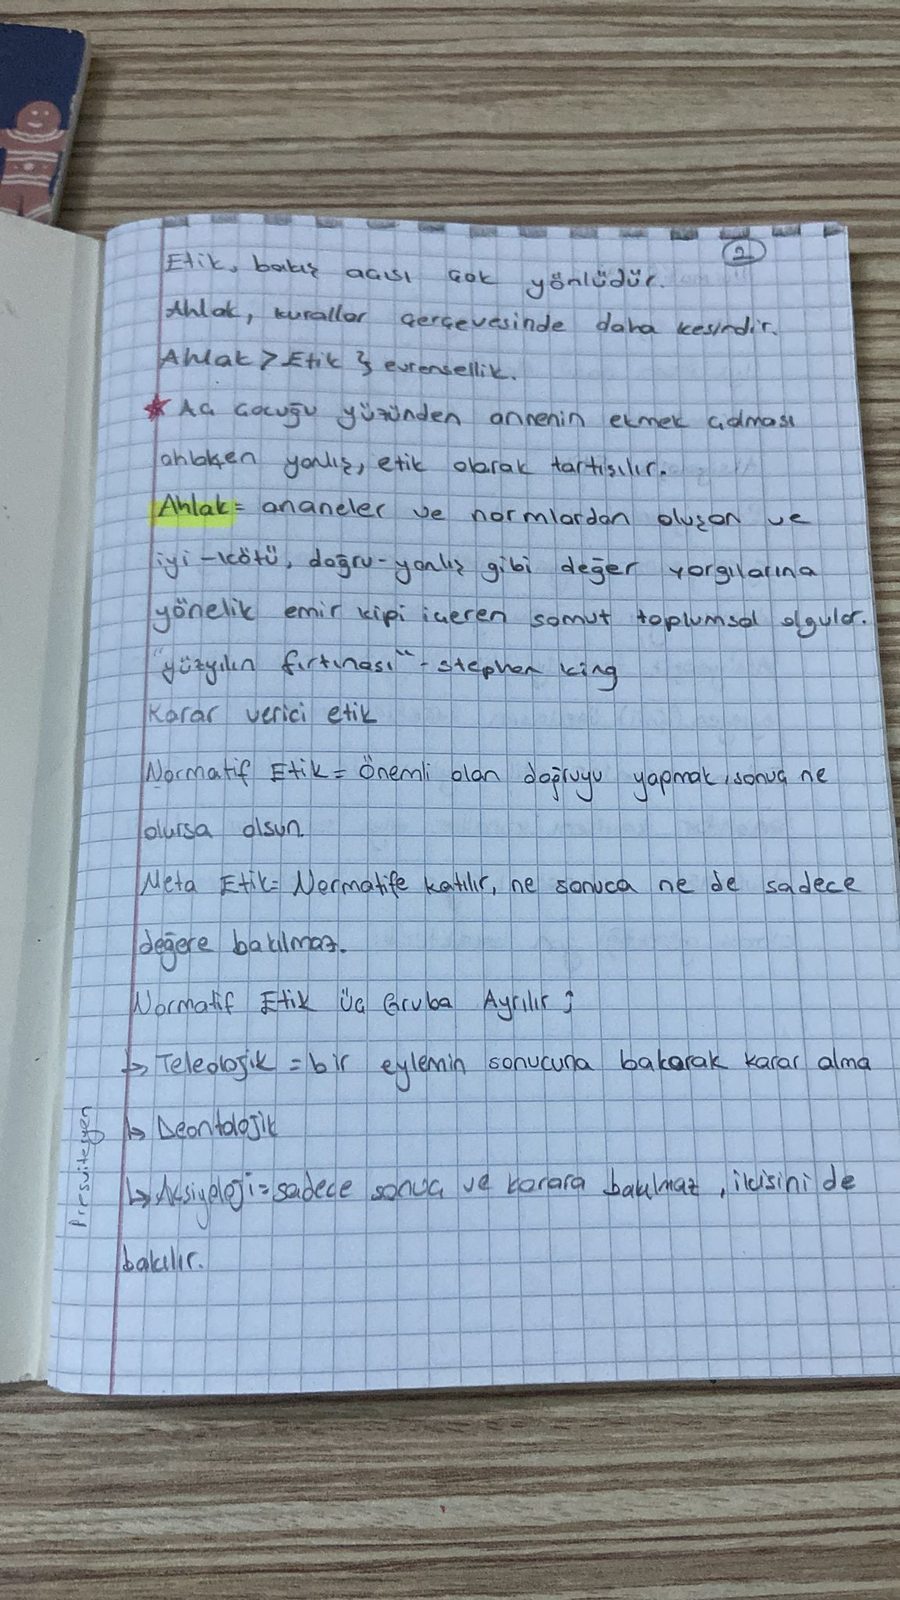 2
Etik, bakış açısı çok yönlüdür.
Ahlak, kurallar çerçevesinde daha kesindir.
Ahlak > Etik } evrensellik.
★ Aç çocuğu yüzünden annenin ekmek çalması
ahlaken yanlış, etik olarak tartışılır.
Ahlak = ananeler ve normlardan oluşan ve
iyi-kötü, doğru-yanlış gibi değer yargılarına
yönelik emir kipi içeren somut toplumsal olgular.
"yüzyılın fırtınası" - stephen king
Karar verici etik
Normatif Etik = Önemli olan doğruyu yapmak, sonuç ne
olursa olsun.
Meta Etik = Normatife katılır, ne sonuca ne de sadece
değere bakılmaz.
Normatif Etik Üç Gruba Ayrılır;
↳ Teleolojik = bir eylemin sonucuna bakarak karar alma
↳ Deontolojik
↳ Aksiyoloji = sadece sonuç ve karara bakılmaz, ikisini de
bakılır.
Presviteryen